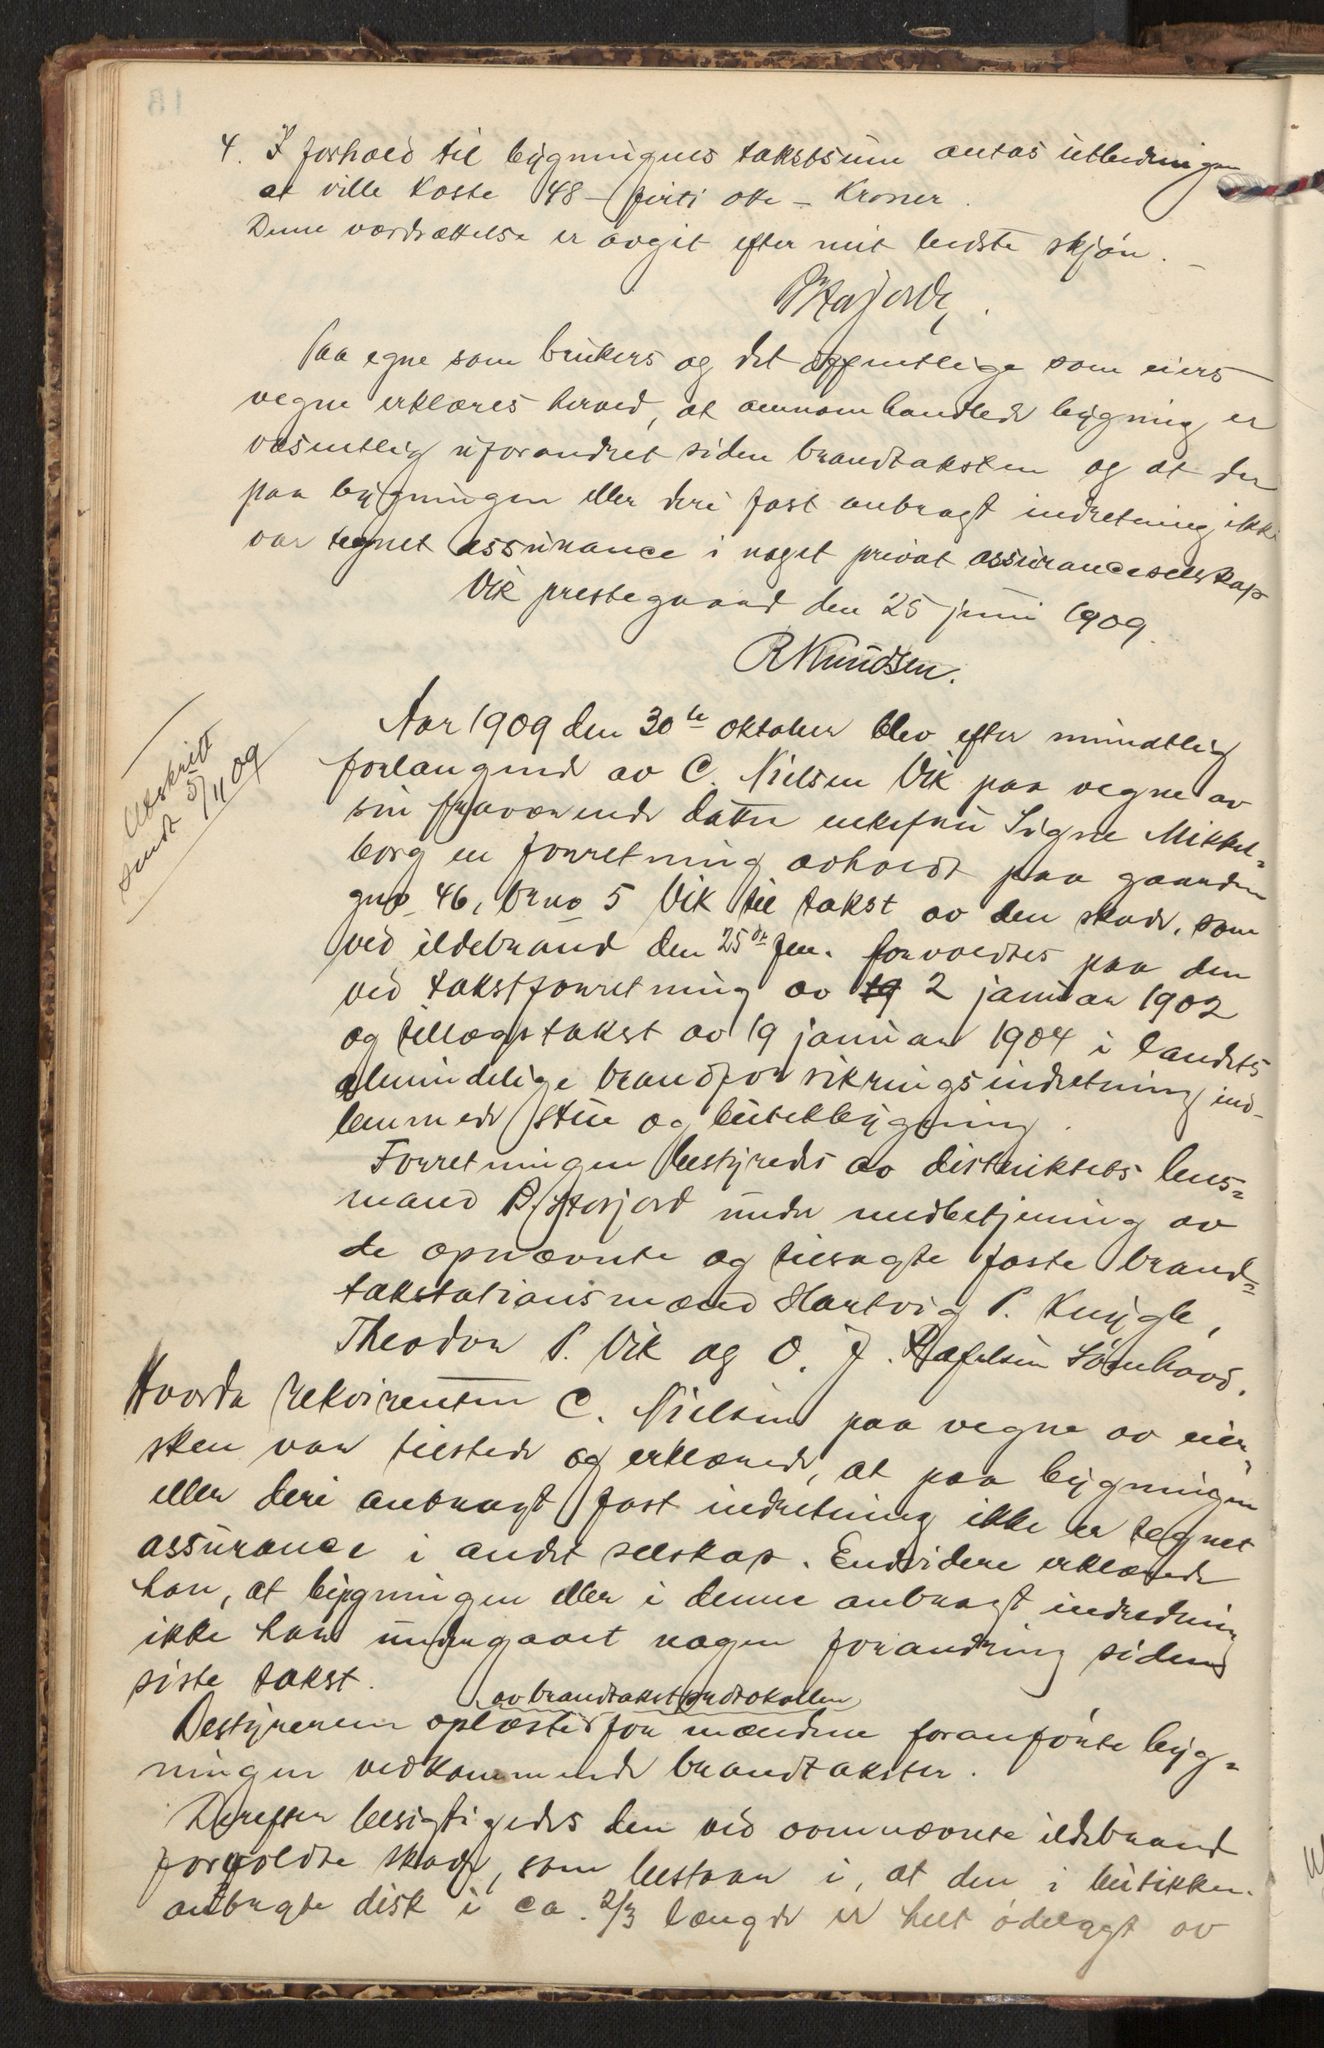 4. I forhold til bygningens takstsum antas utbedringen
at ville koste 48 – firti otte – Kroner.
Denne værdsættelse er avgit efter mit bedste skjön. –
Paa egne som brukers og det offentlige som eiers
vegne erklæres herved, at omhandlede bygning er
væsentlig uforandret siden brandtaksten og at der
paa bygningen eller deri fast anbragt indretning ikke
var tegnet assurance i noget privat assuranceselskap
Vik prestegaard den 25 juni 1909.
R Knudsen.
Utskrift
sendt 5/11 09
Aar 1909 den 30te oktober blev efter mundtlig
forlangende av C. Nielsen Vik paa vegne av
sin fraværende datter enkefru Signe Mikkel=
borg en forretning avholdt paa gaarden
gno 46, bruno 5 Vik til takst av den skade, som
ved ildebrand den 25de voldtes paa den
ved takstforretning av 19 2 januar 1902
og tillægstakst av 19 januar 1904 i landets
almindelige brandforsikringsindretning ind-
lemmede stue og butikbygning.
Forretningen bestyredes av distriktets lens=
mand P. Hasjord under medbetjening av
de opnævnte og tilsagte faste brand=
takstationsmænd Hartvig P. Knygle,
Theodor P. Vik og O. J. Sömhovd.
Hvorda rekvirenten C. Nielsen paa vegne av eier-
sken var tilstede og erklærede, at paa bygningen
eller deri anbragt fast indretning ikke er tegnet
assurance i andet selskap. Endvidere erklærede
han, at bygningen eller i denne anbragt indredning
ikke har undergaaet nogen forandring siden
siste takst.
av brandtakstprotokollen
Bestyreren oplæste for mændene foranförte byg-
ningen vedkommende brandtakster.
Derefter besigtigedes den ved ovennævnte ildebrand
forvoldte skade, som bestaar i, at den i butikken
anbragte disk i ca. 2/3 længde er helt ödelagt av